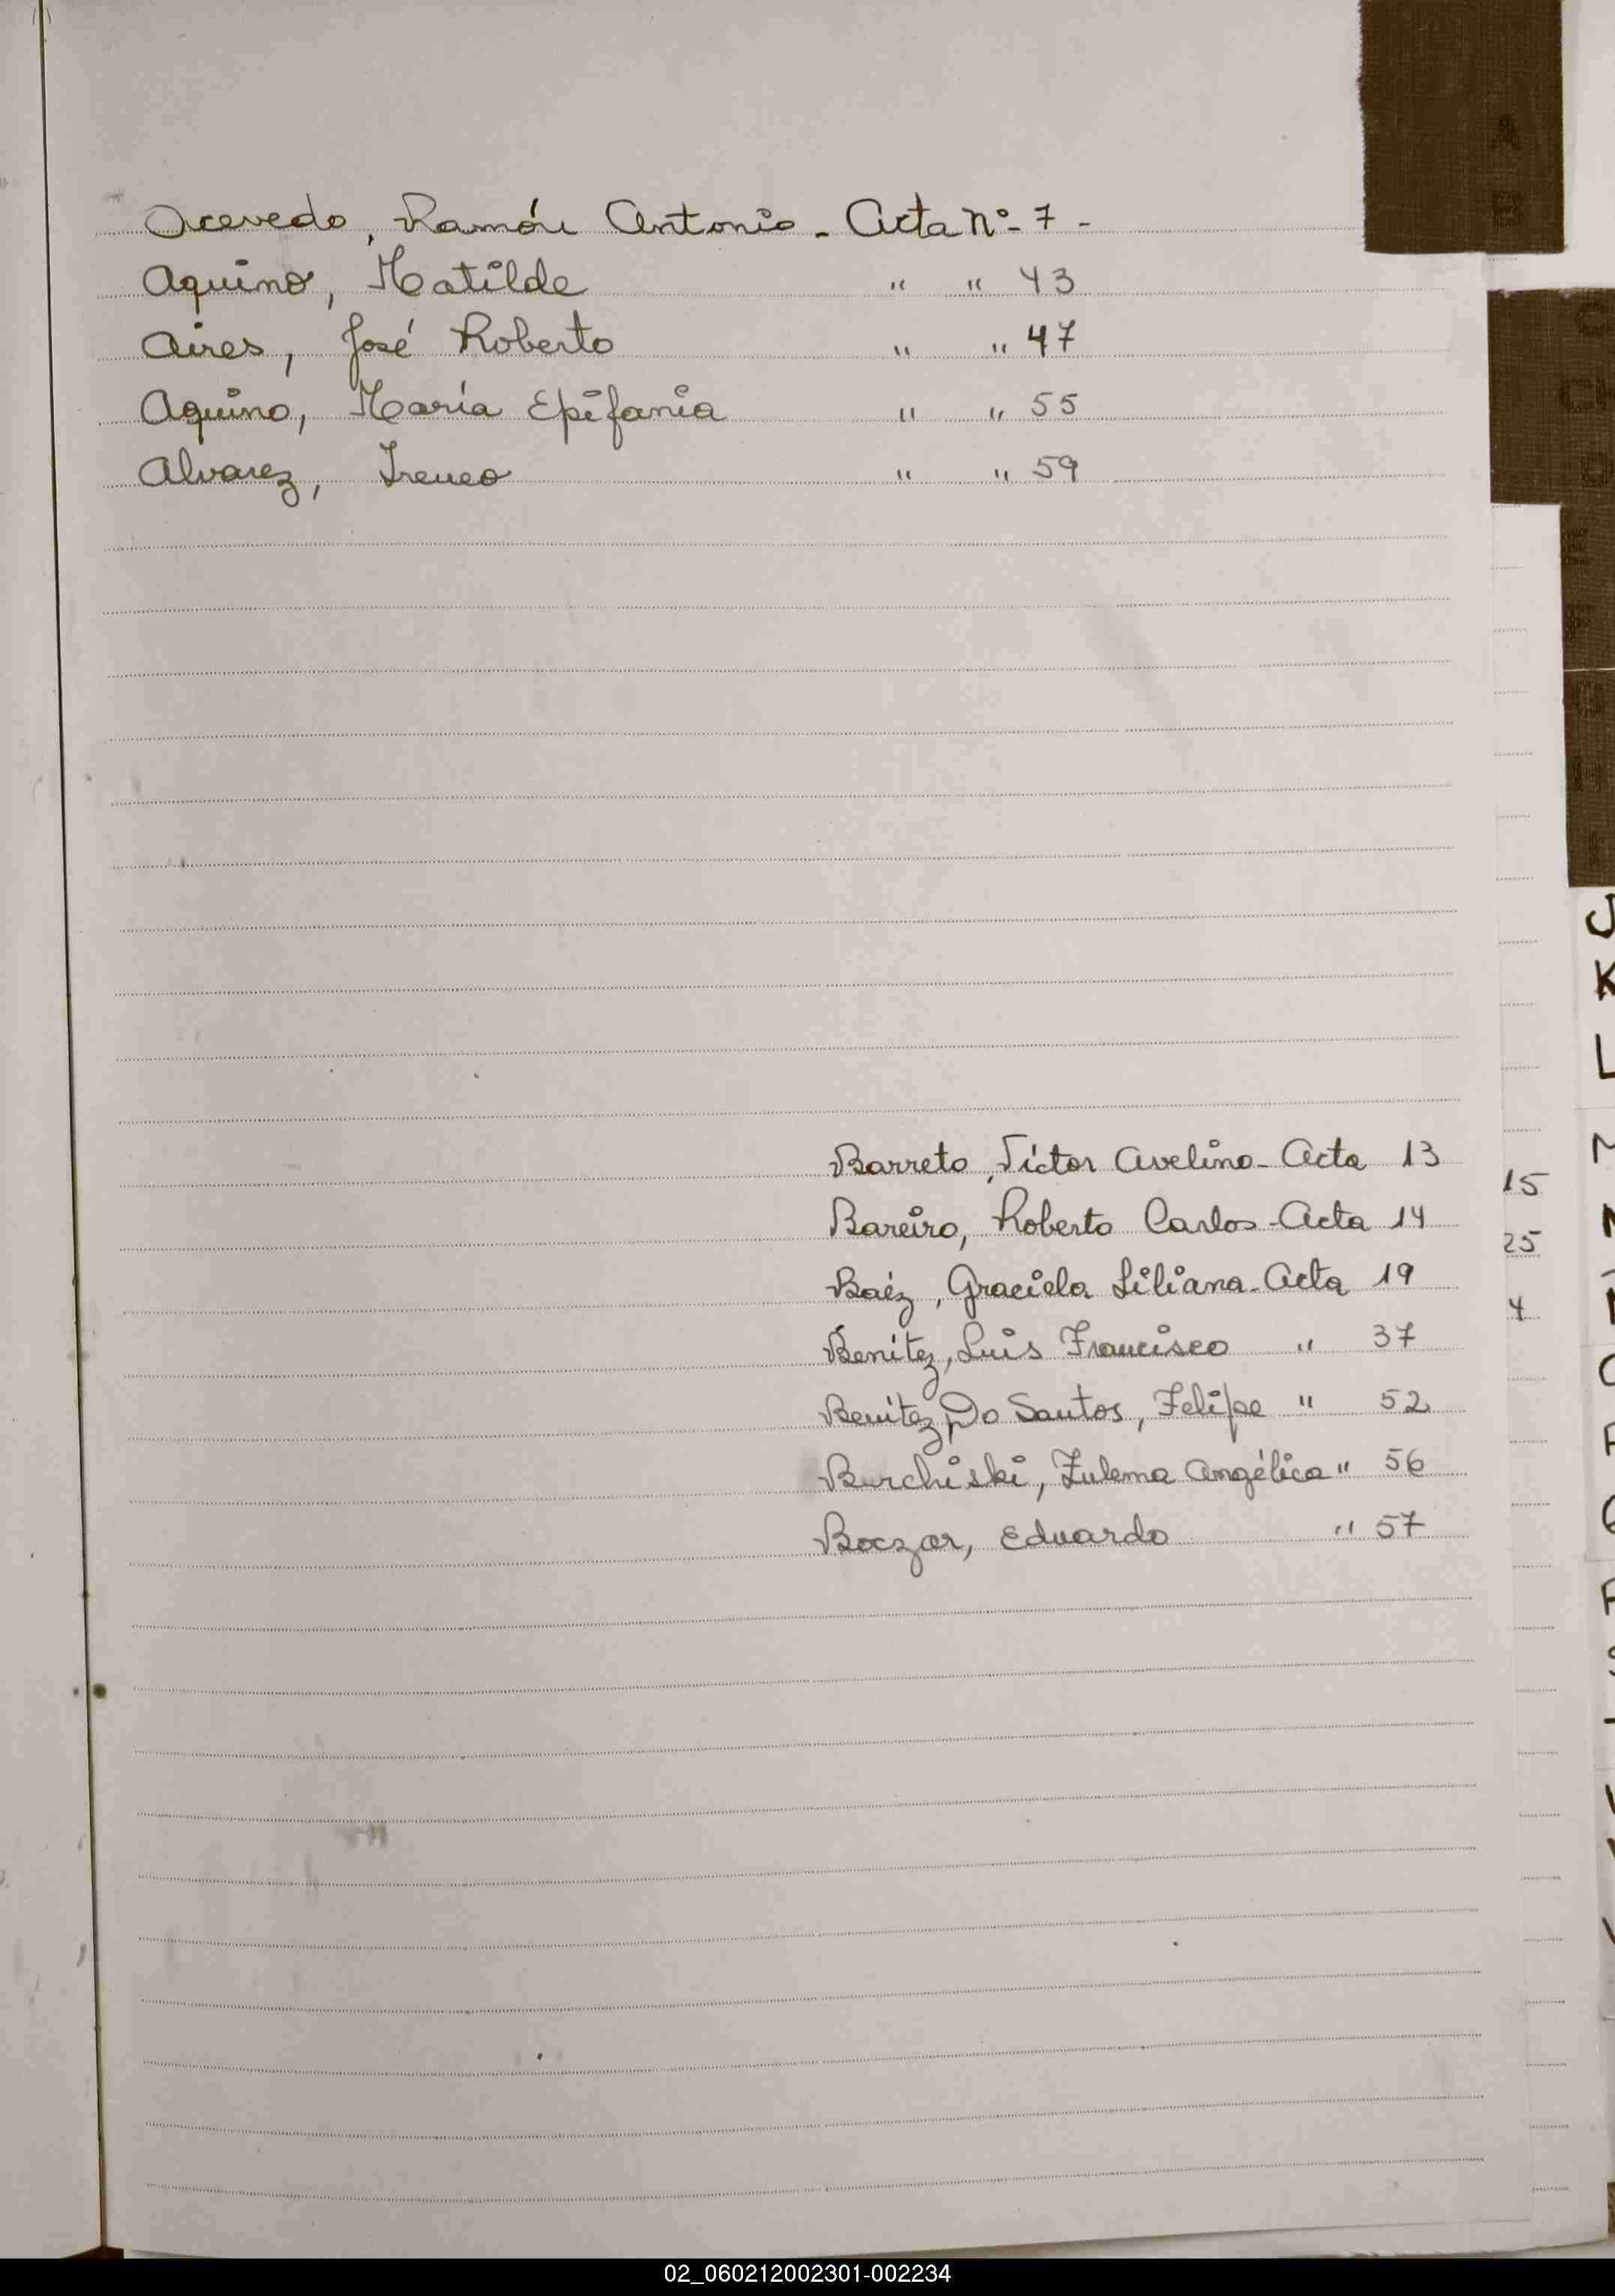 A
B
Acevedo, Ramón Antonio - Acta Nº 7 -
Aquino, Matilde " " 43
Aires, José Roberto " " 47
Aquino, María Epifania " " 55
Alvarez, Ireneo " " 59
J
K
L
M
Barreto, Víctor Avelino - Acta 13
15
Bareiro, Roberto Carlos - Acta 14
25
Baéz, Graciela Liliana - Acta 19
4
Benítez, Luis Francisco " 37
Benítez Do Santos, Felipe " 52
Burchiski, Zulema Angélica " 56
Boczar, Eduardo " 57
02_060212002301-002234